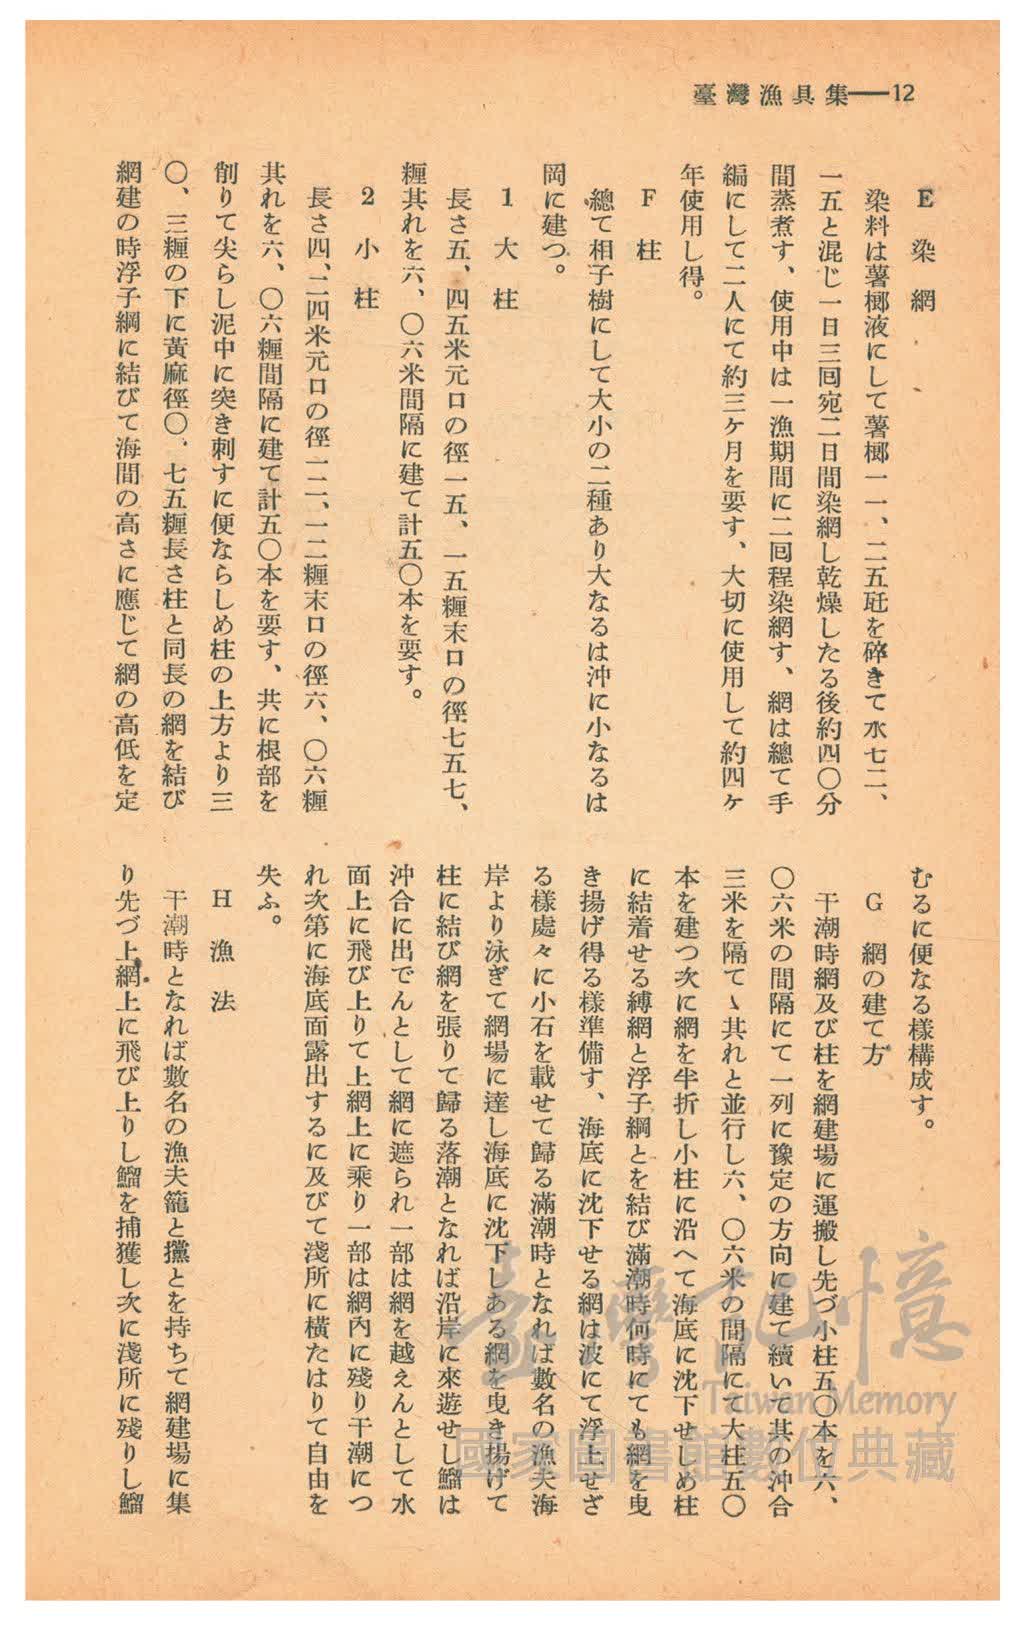 臺灣漁具集——12
E 染網
染料は薯榔液にして薯榔一一、二五瓩を碎きて水七二、
一五と混じ一日三囘宛二日間染網し乾燥したる後約四〇分
間蒸煮す、使用中は一漁期間に二囘程染網す、網は總て手
編にして二人にて約三ケ月を要す、大切に使用して約四ケ
年使用し得。
F 柱
總て相子樹にして大小の二種あり大なるは沖に小なるは
岡に建つ。
1 大柱
長さ五、四五米元口の徑一五、一五糎末口の徑七五七、
糎其れを六、〇六米間隔に建て計五〇本を要す。
2 小柱
長さ四、二四米元口の徑一二、一二糎末口の徑六、〇六糎
其れを六、〇六糎間隔に建て計五〇本を要す、共に根部を
削りて尖らし泥中に突き刺すに便ならしめ柱の上方より三
〇、三糎の下に黃麻徑〇、七五糎長さ柱と同長の網を結び
網建の時浮子綱に結びて海間の高さに應じて網の高低を定
むるに便なる樣構成す。
G 網の建て方
干潮時網及び柱を網建場に運搬し先づ小柱五〇本を六、
〇六米の間隔にて一列に豫定の方向に建て續いて其の沖合
三米を隔てゝ共れと並行し六、〇六米の間隔にて大柱五〇
本を建つ次に網を半折し小柱に沿へて海底に沈下せしめ柱
に結着せる縛網と浮子綱とを結び滿潮時何時にても網を曳
き揚げ得る樣準備す、海底に沈下せる網は波にて浮上せざ
る樣處々に小石を載せて歸る滿潮時となれば數名の漁夫海
岸より泳ぎて網場に達し海底に沈下しある網を曳き揚げて
柱に結び網を張りて歸る落潮となれば沿岸に來遊せし鰡は
沖合に出でんとして網に遮られ一部は網を越えんとして水
面上に飛び上りて上網上に乘り一部は網內に殘り干潮につ
れ次第に海底面露出するに及びて淺所に橫たはりて自由を
失ふ。
H 漁法
干潮時となれば數名の漁夫籠と攩とを持ちて網建場に集
り先づ上網上に飛び上りし鰡を捕獲し次に淺所に殘りし鰡
臺灣記憶
Taiwan Memory
國家圖書館數位典藏